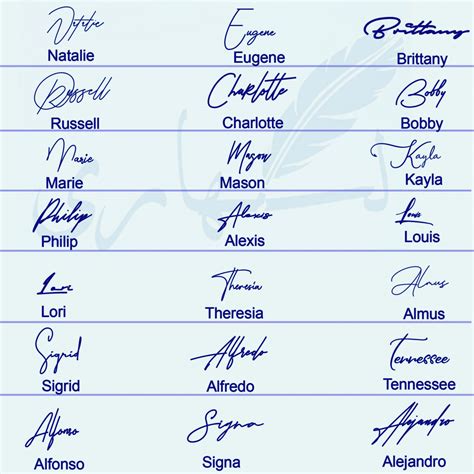 Natalie Eugene Brittany
Natalie Eugene Brittany
Russell Charlotte Bobby
Russell Charlotte Bobby
Marie Mason Kayla
Marie Mason Kayla
Philip Alexis Louis
Philip Alexis Louis
Lori Theresia Almus
Lori Theresia Almus
Sigrid Alfredo Tennessee
Sigrid Alfredo Tennessee
Alfonso Signa Alejandro
Alfonso Signa Alejandro